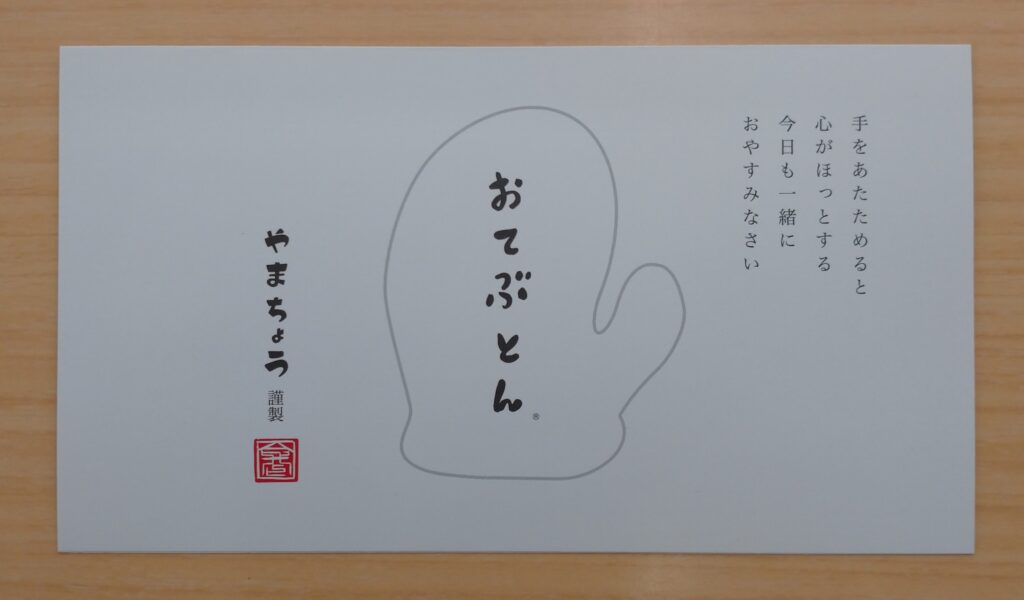 手をあたためると
心がほっとする
今日も一緒に
おやすみなさい
おてぶとん®
やまちょう謹製